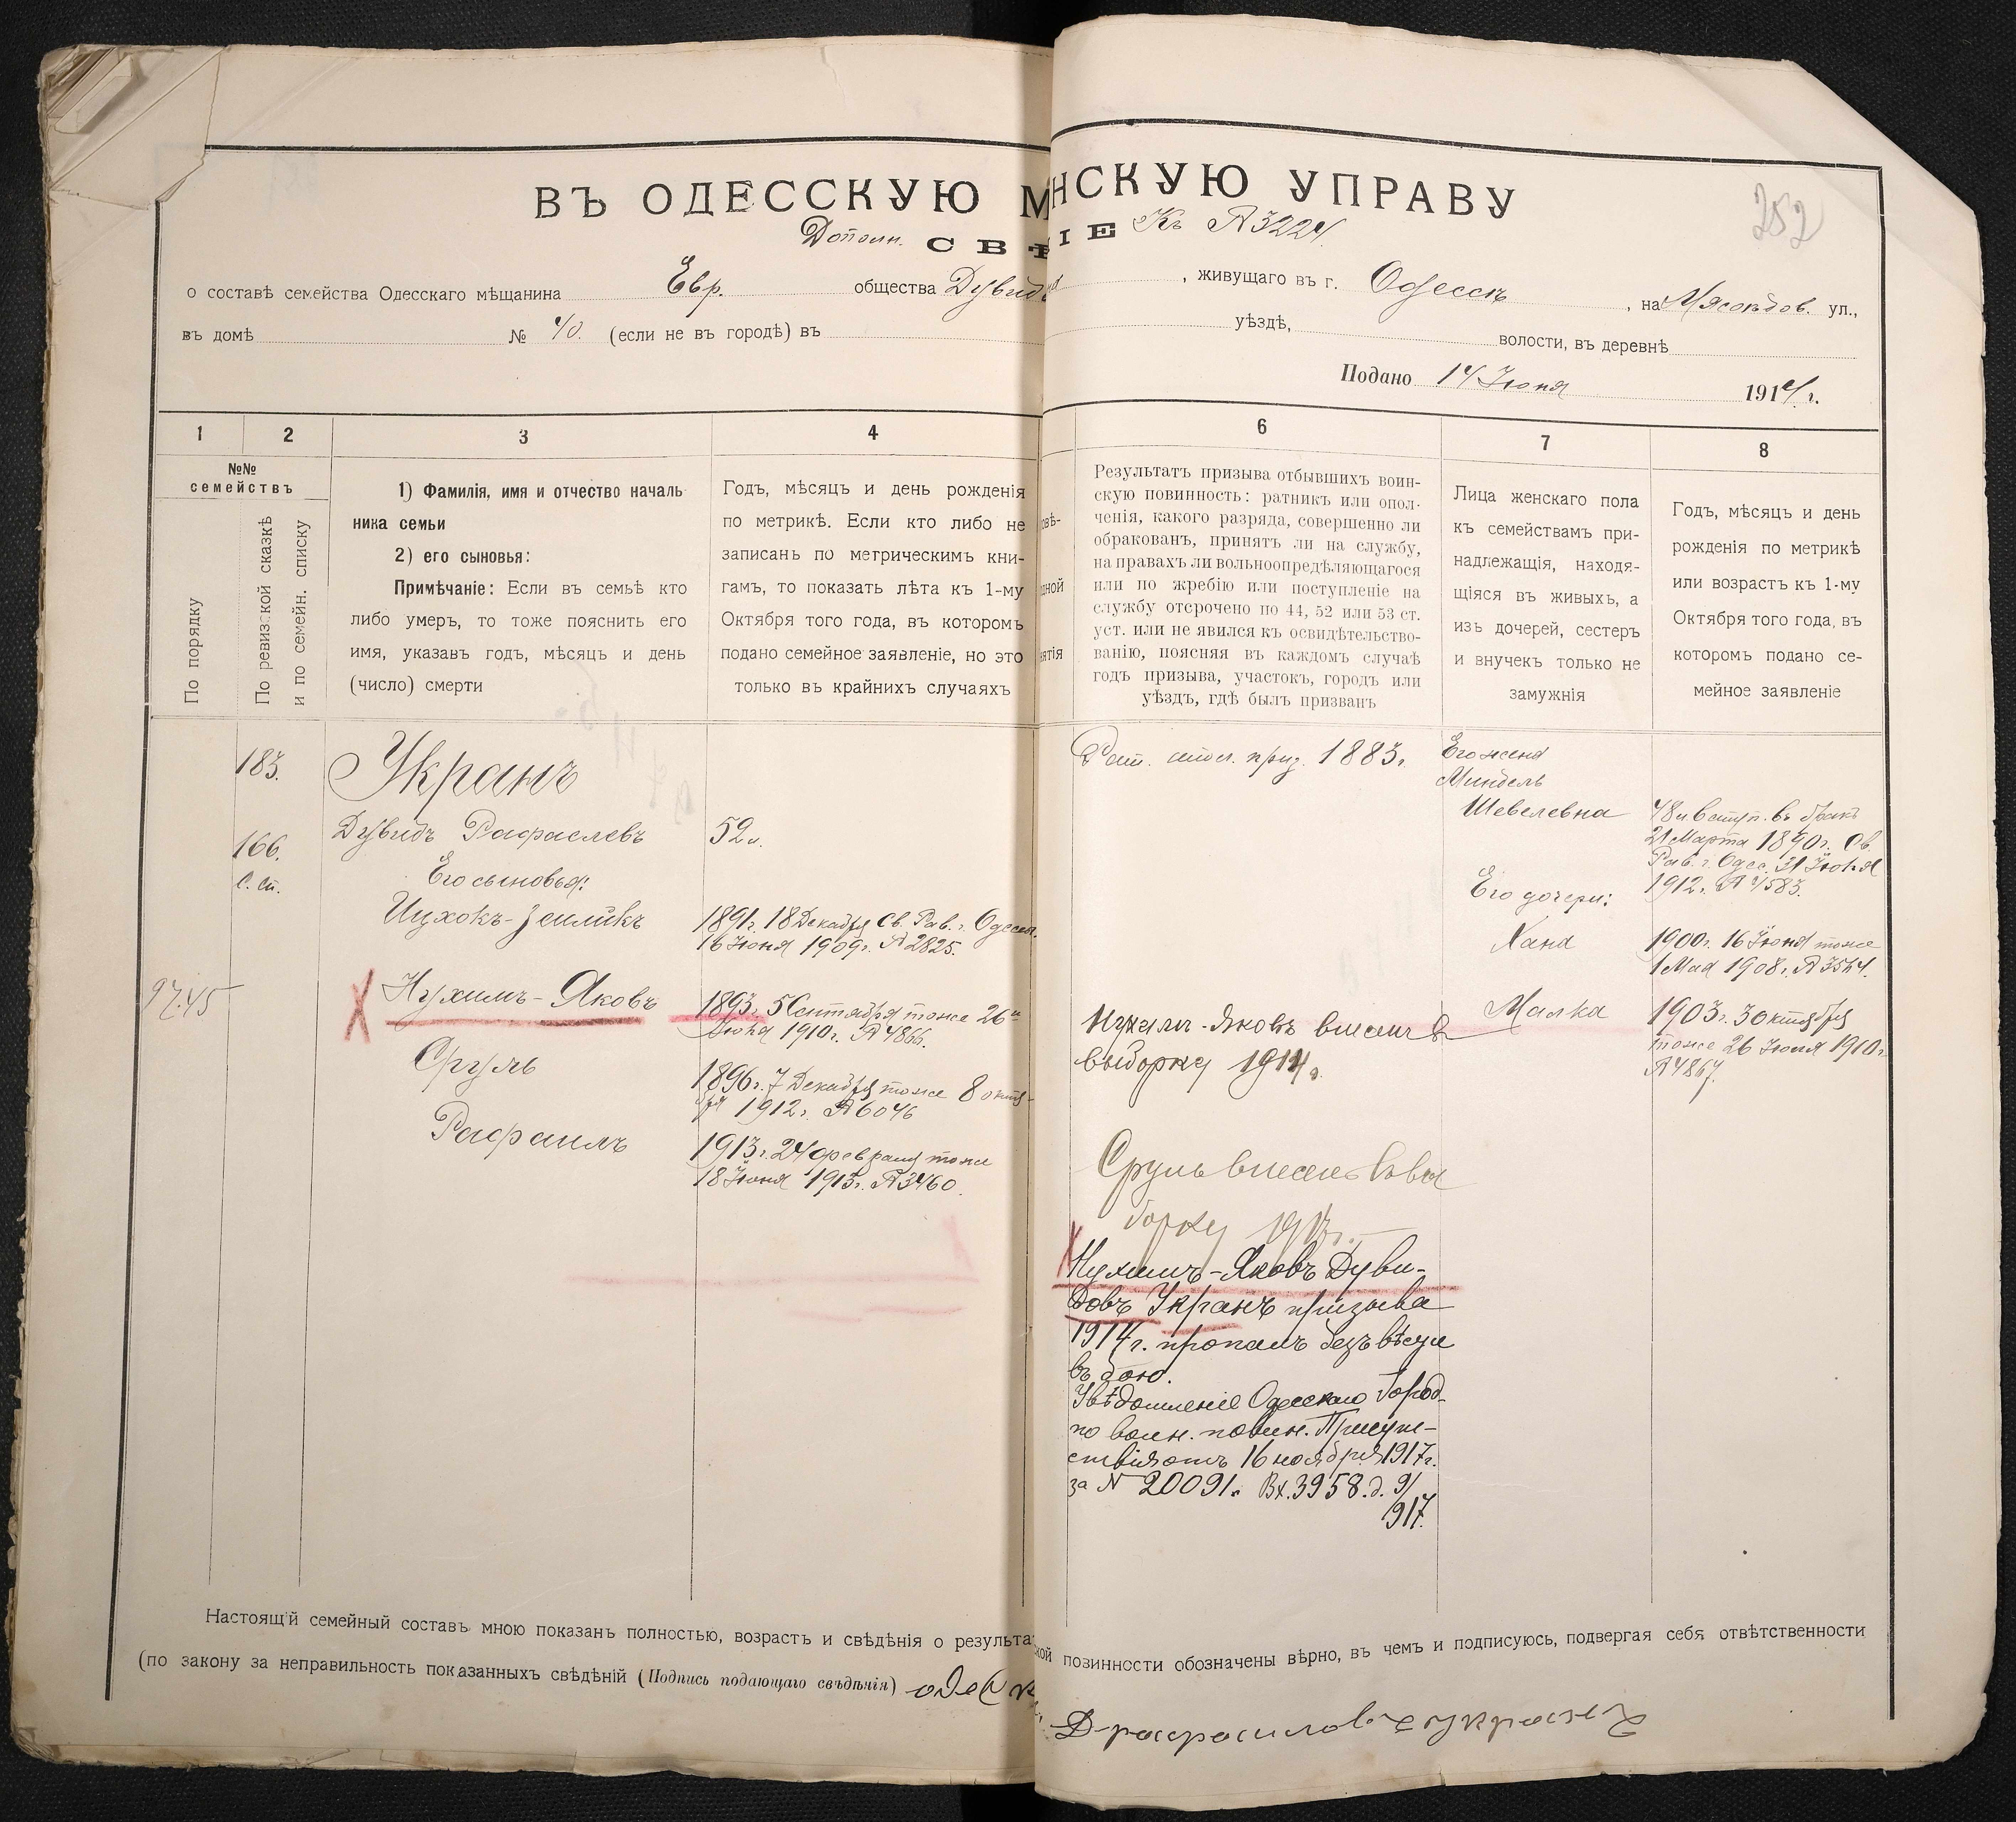 252
ВЪ ОДЕССКУЮ М НСКУЮ УПРАВУ
Дополн. СВѢ ІЕ Къ № 3224.
о составѣ семейства Одесскаго мѣщанина Евр. общества Дувида , живущаго въ г. Одессѣ , на Мясоѣдов. ул.,
въ домѣ № 40. (если не въ городѣ) въ уѣздѣ, волости, въ деревнѣ
Подано 14 Іюня 1914 г.
1 2 3 4 6 7 8
№№
семействъ
По порядку
По ревизской сказкѣ
и по семейн. списку
1) Фамилія, имя и отчество началь
ника семьи
2) его сыновья:
Примѣчаніе: Если въ семьѣ кто
либо умеръ, то тоже пояснить его
имя, указавъ годъ, мѣсяцъ и день
(число) смерти
Годъ, мѣсяцъ и день рожденія
по метрикѣ. Если кто либо не
записанъ по метрическимъ кни-
гамъ, то показать лѣта къ 1-му
Октября того года, въ которомъ
подано семейное заявленіе, но это
только въ крайнихъ случаяхъ
овѣ-
дной
нятія
Результатъ призыва отбывшихъ воин-
скую повинность: ратникъ или опол-
ченія, какого разряда, совершенно ли
обракованъ, принятъ ли на службу,
на правахъ ли вольноопредѣляющагося
или по жребію или поступленіе на
службу отсрочено по 44, 52 или 53 ст.
уст. или не явился къ освидѣтельство-
ванію, поясняя въ каждомъ случаѣ
годъ призыва, участокъ, городъ или
уѣздъ, гдѣ былъ призванъ
Лица женскаго пола
къ семействамъ при-
надлежащія, находя-
щіяся въ живыхъ, а
изъ дочерей, сестеръ
и внучекъ только не
замужнія
Годъ, мѣсяцъ и день
рожденія по метрикѣ
или возрастъ къ 1-му
Октября того года, въ
которомъ подано се-
мейное заявленіе
183.
166.
С. сп.
97.45
Украпъ
Дувидъ Рафаелевъ 52 л.
Его сыновья:
Ицхокъ-Зейликъ
1891 г. 18 Декабря Св. Рав. г. Одессы.
16 Іюня 1909 г. № 2825.
Нухимъ-Яковъ
1893 г. 5 Сентября тоже 26
Іюня 1910 г. № 4866.
Сруль
1896 г. 7 Декабря тоже 8 октя-
бря 1912 г. № 6046
Рафаилъ
1913 г. 24 февраля тоже
18 Іюня 1913 г. № 3460.
Рат. опол. приз. 1883 г.
Нухим-Яковъ внесенъ в
выборку 1914 г.
Сруль внесенъ въ вы
борку 1917 г.
Нухимъ-Яковъ Дуви-
довъ Укранъ призыва
1914 г. пропалъ безъ вѣсти
въ бою.
Увѣдомленіе Одесскаго Город.
по воин. повин. Присут-
ствія отъ 16 ноября 1917 г.
за № 20091. Вх. 3958. д. 9/
917.
Его жена
Миндель
Шевелевна
48 л. вступ. въ бракъ
21 Марта 1890 г. Св.
Рав. г. Одес. 21 Іюня
1912 г. № 4583.
Его дочери:
Хана
1900 г. 16 Іюня тоже
1 Мая 1908 г. № 3524.
Малка
1903 г. 3 октября
тоже 26 Іюня 1910 г.
№ 4867.
Настоящій семейный составъ мною показанъ полностью, возрастъ и свѣдѣнія о результа кой повинности обозначены вѣрно, въ чемъ и подписуюсь, подвергая себя отвѣтственности
(по закону за неправильность показанныхъ свѣдѣній (Подпись подающаго свѣдѣнія)